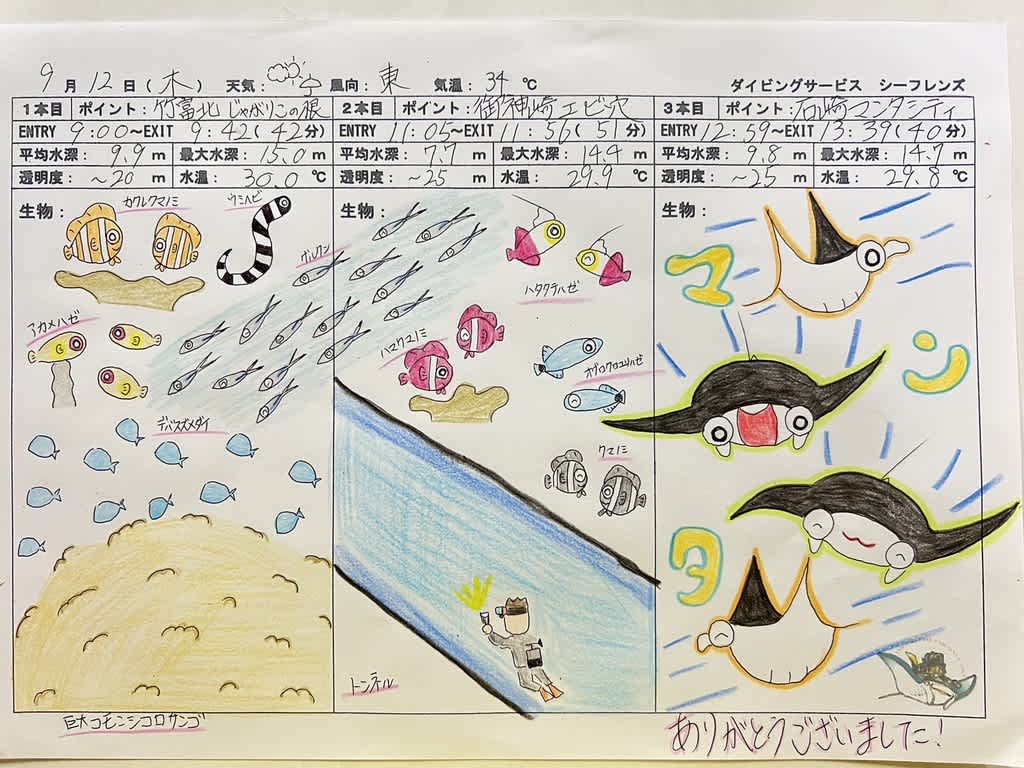 9月12日(木) 天気: 風向:東 気温:34℃ ダイビングサービス シーフレンズ
1本目 ポイント:竹富北 じゃがりこの根
ENTRY 9:00~EXIT 9:42(42分)
平均水深: 9.9 m 最大水深: 15.0 m
透明度: ~20 m 水温: 30.0 ℃
生物:
カクレクマノミ
ウミヘビ
グルクン
アカメハゼ
デバスズメダイ
巨大コモンシコロサンゴ
2本目 ポイント:御神崎エビ穴
ENTRY 11:05~EXIT 11:56(51分)
平均水深: 7.7 m 最大水深: 14.4 m
透明度: ~25 m 水温: 29.9 ℃
生物:
ハタタテハゼ
ハマクマノミ
オグロクロユリハゼ
クマノミ
トンネル
3本目 ポイント:石崎マンタシティ
ENTRY 12:59~EXIT 13:39(40分)
平均水深: 9.8 m 最大水深: 14.7 m
透明度: ~25 m 水温: 29.8 ℃
生物:
マ
ン
タ
ありがとうございました!